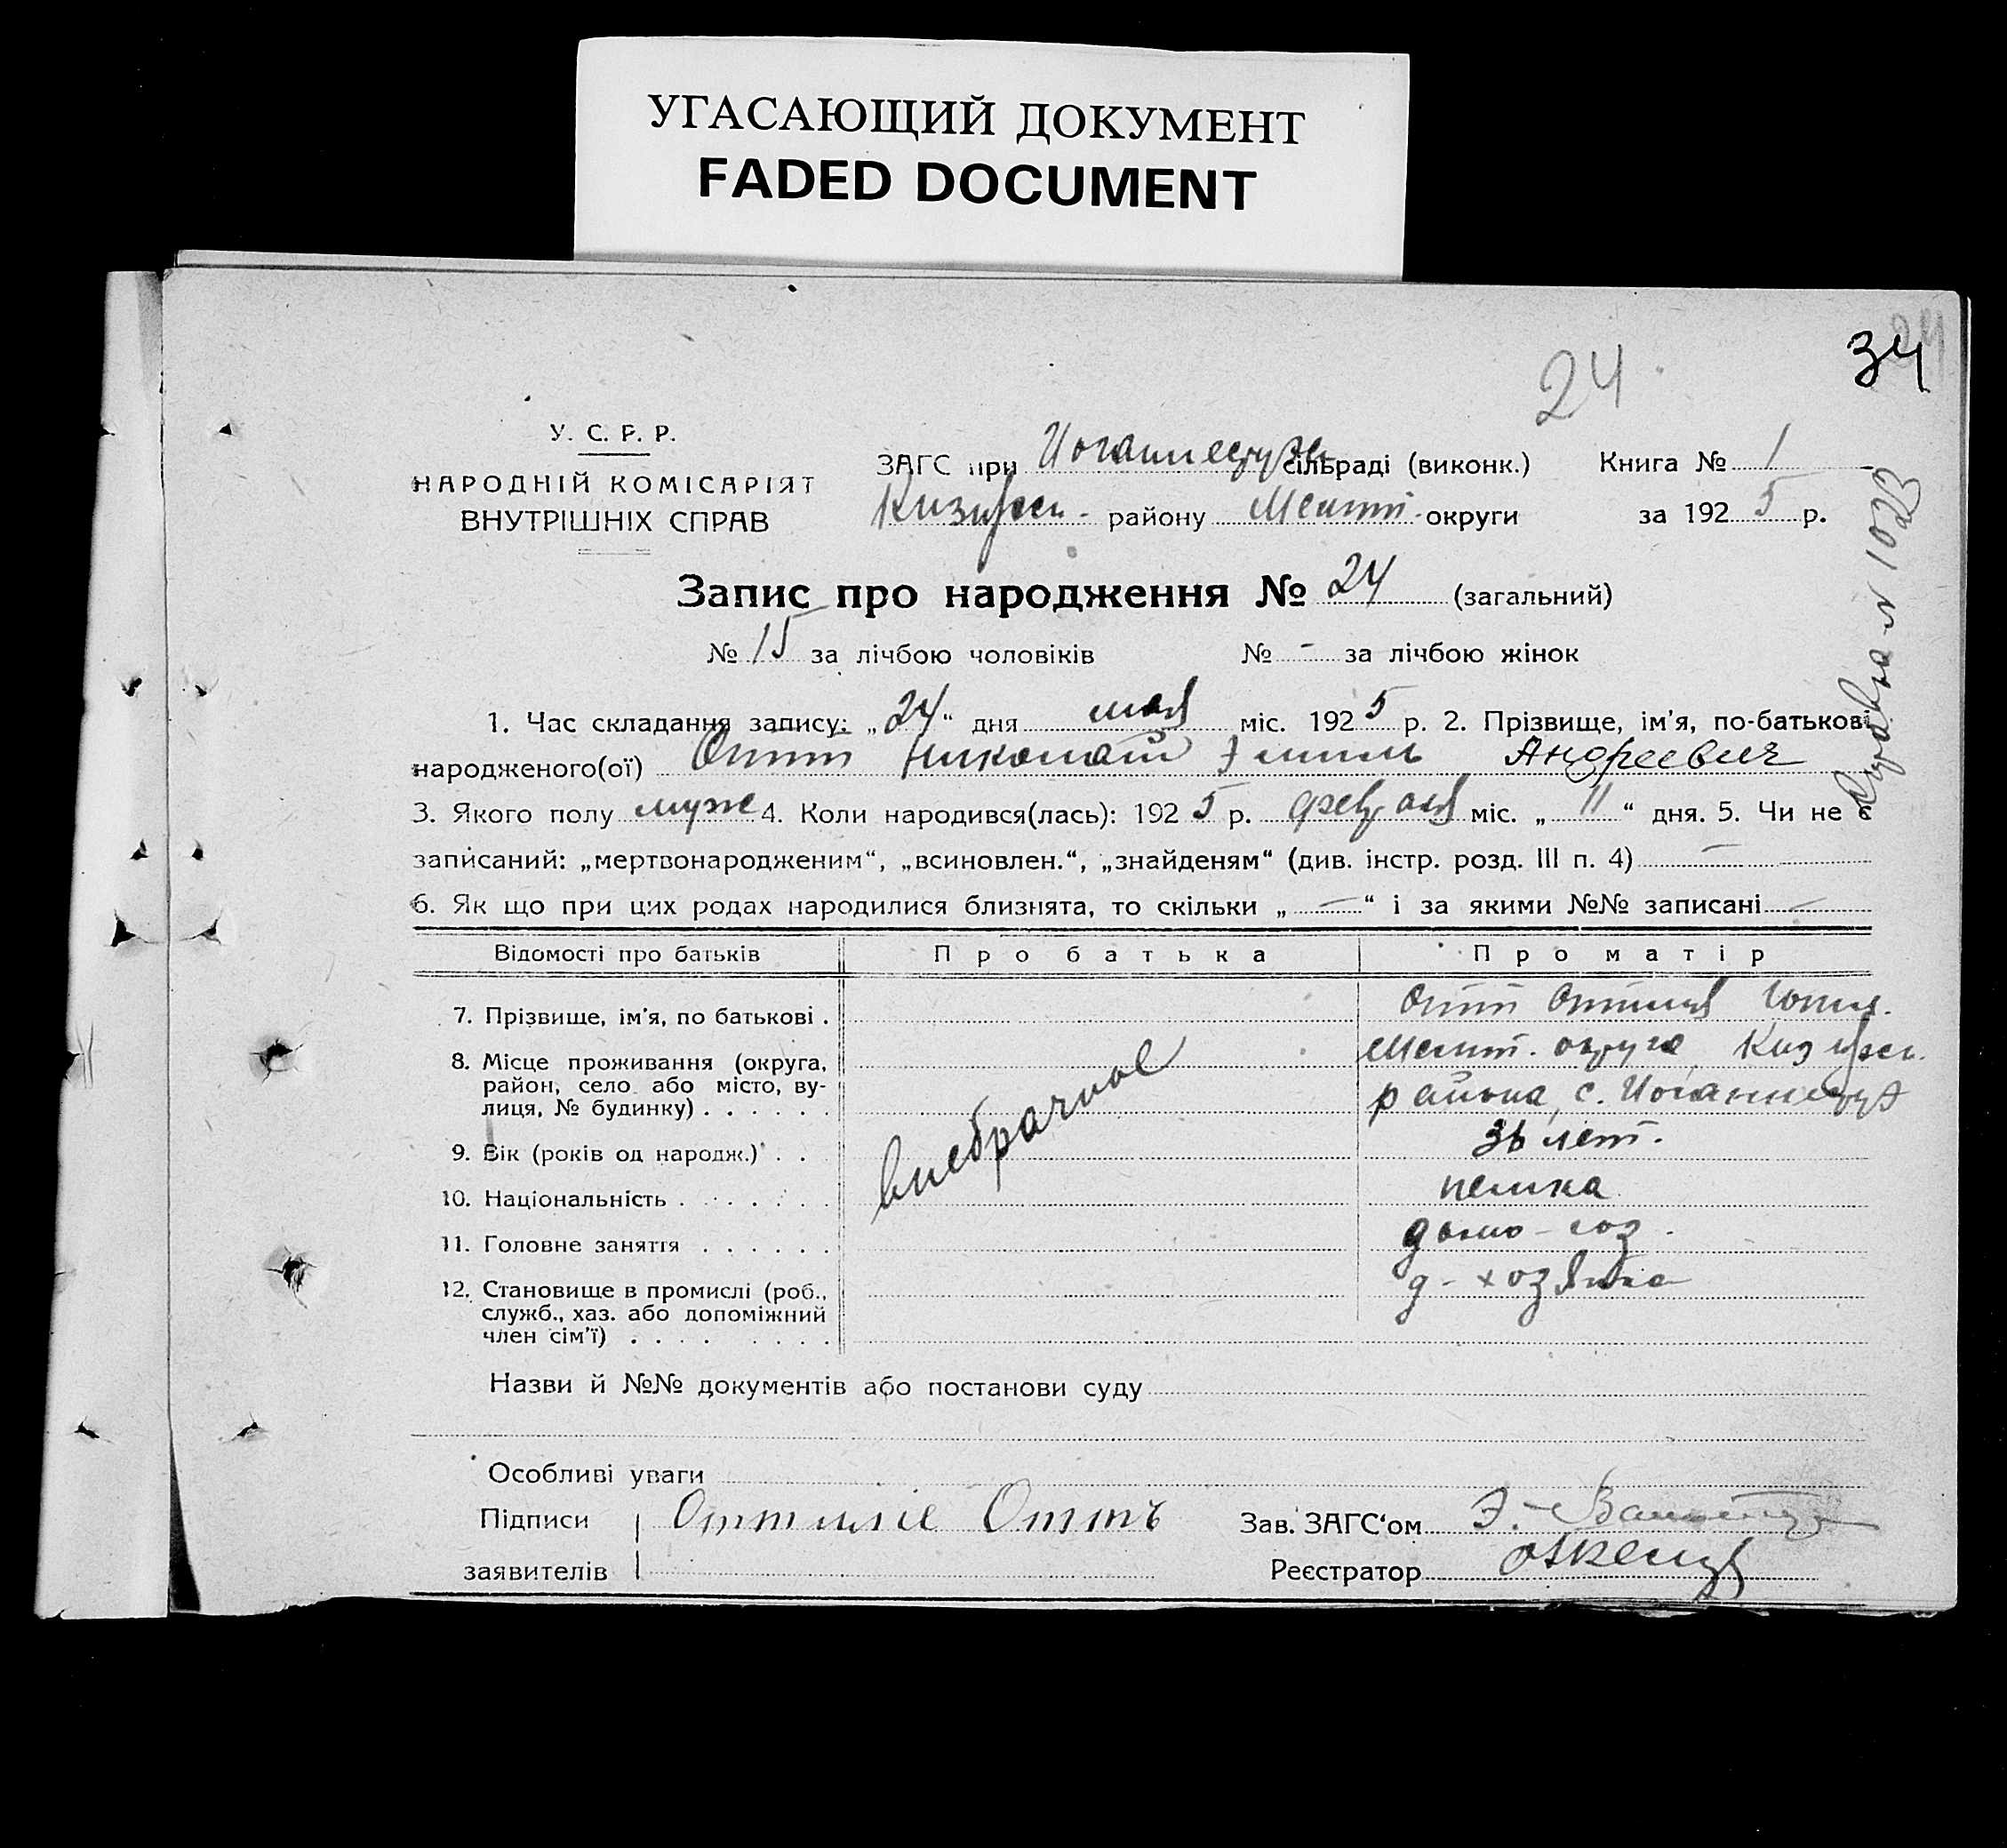 УГАСАЮЩИЙ ДОКУМЕНТ
FADED DOCUMENT
34
24
24
У. С. Р. Р.
НАРОДНІЙ КОМІСАРІЯТ
ВНУТРІШНІХ СПРАВ
ЗАГС при Иоганнесруэ сільраді (виконк.) Книга № 1
району Мелит. округи за 1925 р.
Запис про народження № 24 (загальний)
№ 15 за лічбою чоловіків № - за лічбою жінок
Справка N
1. Час складання запису: „24“ дня мая міс. 1925 р. 2. Прізвище, ім'я, по-батькові
народженого(ої) Отт Николай Эмиль Андреевич
3. Якого полу муж 4. Коли народився(лась): 1925 р. февраля міс. „11“ дня. 5. Чи не є
записаний: „мертвонародженим“, „всиновлен.“, „знайденям“ (див. інстр. розд. III п. 4) —
6. Як що при цих родах народилися близнята, то скільки „—“ і за якими №№ записані —
Відомості про батьків Про батька Про матір
7. Прізвище, ім'я, по батькові . Отт Оттилия
8. Місце проживання (округа, район, село або місто, ву-
лиця, № будинку) . . . . . .
Мелит. округа
района, с. Иоганнесруэ
внебрачное
9. Вік (років од народж.) . . 36 лет.
10. Національність . . . . . . немка
11. Головне заняття . . . . . . домо-хоз.
12. Становище в промислі (роб., д-хозяйка
служб., хаз. або допоміжний
член сім'ї) . . . . . . . .
Назви й №№ документів або постанови суду
Особливі уваги
Підписи Оттиліе Оттъ Зав. ЗАГС'ом Э.
заявителів Реєстратор